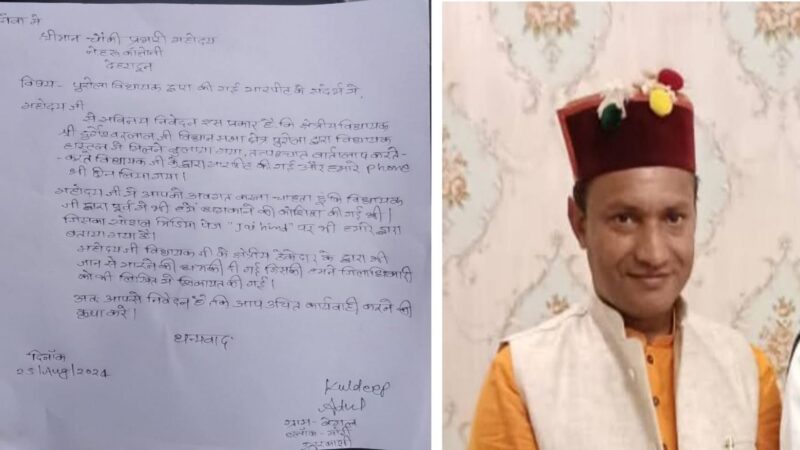 सेवा में
श्रीमान चौकी प्रभारी महोदय
नेहरू कॉलोनी
देहरादून
विषय- पुरोला विधायक द्वारा की गई मारपीट के संदर्भ में,
महोदय जी
में सविनय निवेदन इस प्रकार है कि क्षेत्रीय विधायक
श्री दुर्गेश्वर लाल जी विधान सभा क्षेत्र पुरोला द्वारा विधायक
हास्टल में मिलने बुलाया गया, तत्पश्चात वार्तालाप करते-
-करते विधायक जी के द्वारा मारपीट की गई और हमारे phone
भी छीन लिया गया।
महोदय जी में आपको अवगत करना चाहता हूं कि विधायक
जी द्वारा पूर्व में भी हमें धमकाने की कोशिश की गई थी।
जिसका सोशल मिडिया पेज "Jai hind" पर भी हमारे द्वारा
बताया गया है।
महोदय जी विधायक जी के क्षेत्रीय ठेकेदार के द्वारा भी
जान से मारने की धमकी दी गई जिसकी हमने जिलाधिकारी
को भी लिखित में शिकायत की गई।
अतः आपसे निवेदन है कि आप उचित कार्यवाही करने की
कृपा करें।
धन्यवाद
दिनाँक
25/Aug/2024
Kuldeep
ग्राम-
ब्लॉक- मोरी
उत्तरकाशी